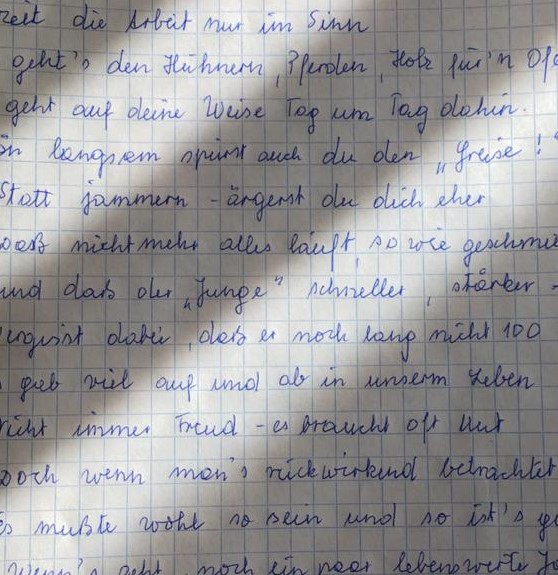 zeit die Arbeit nur im Sinn
geht's den Hühnern, Pferden, Holz für'n Ofe
geht auf deine Weise Tag um Tag dahin.
ön langsam spürst auch du den „Greise!"
Statt jammern - ärgerst du dich eher
Daß nicht mehr alles läuft, so wie geschmie
und daß der „Junge" schneller, stärker -
ergisst dabei, daß er noch lang nicht 100
gab viel auf und ab in unserm Leben
nicht immer Freud - es braucht oft Mut
Doch wenn man's rückwirkend betrachtet
Es mußte wohl so sein und so ist's gu
Wenn's geht, noch ein paar lebenswerte J